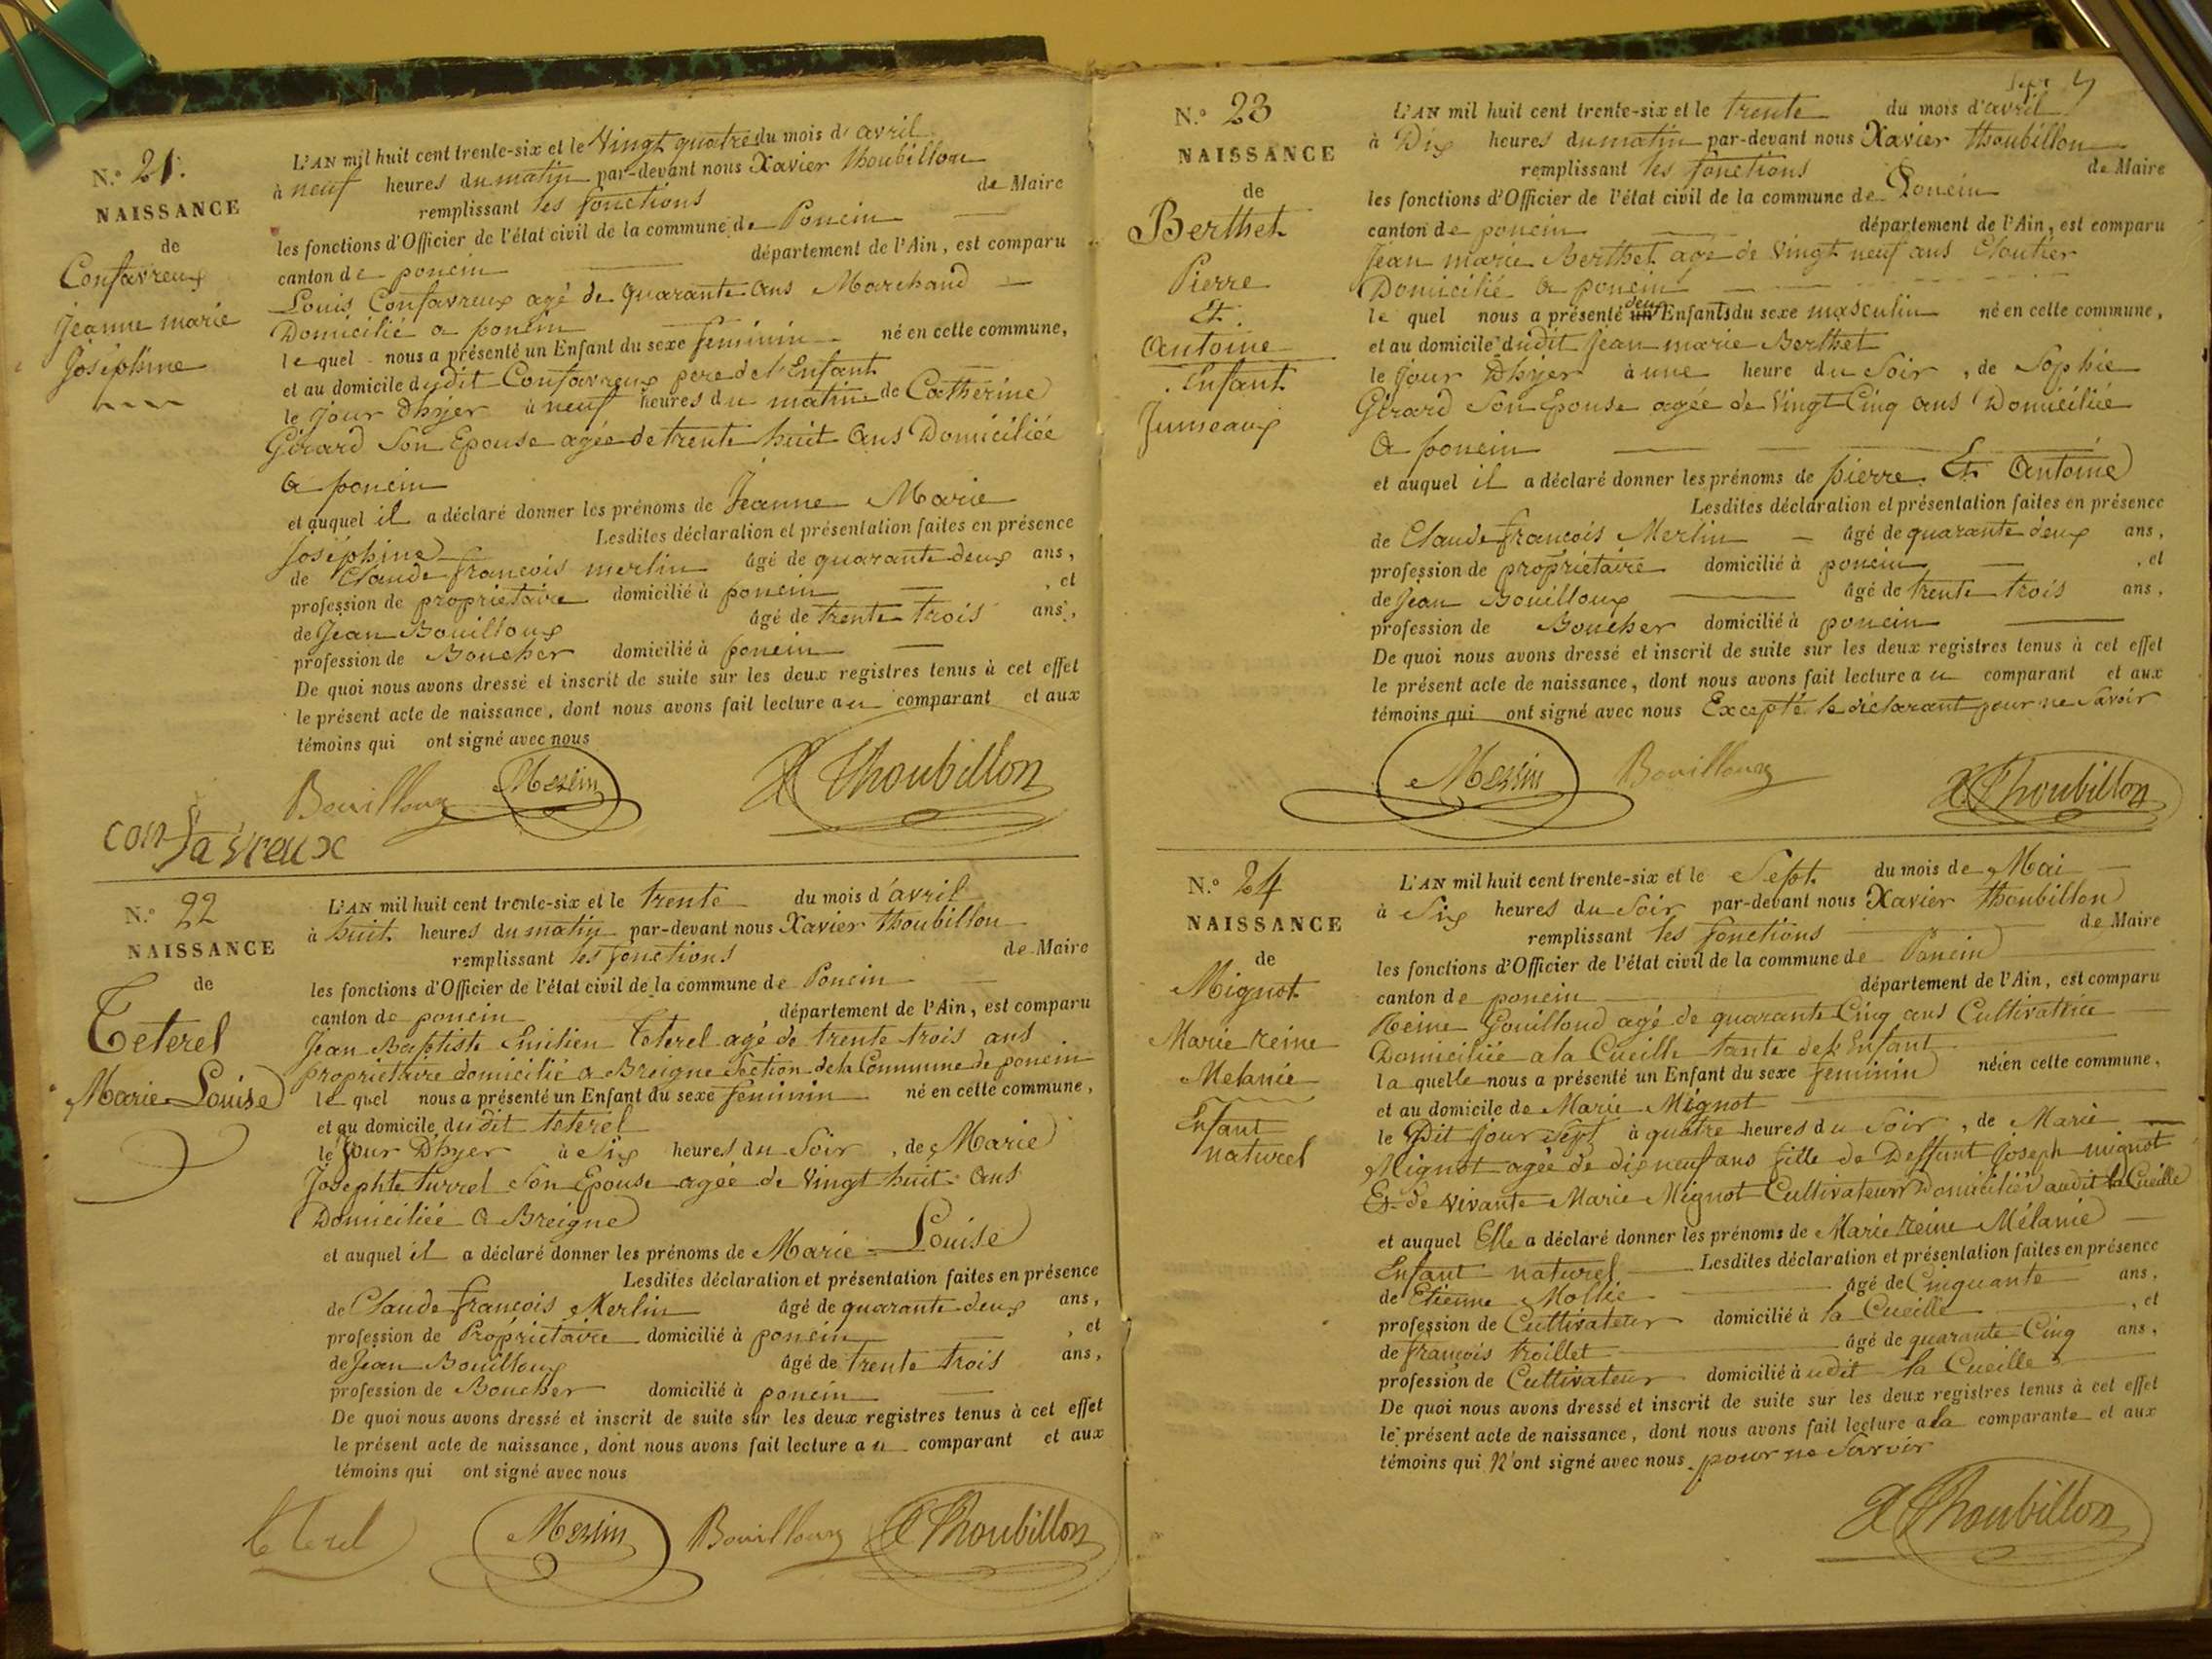 N.° 21.
NAISSANCE
de
Confavreux
Jeanne marie
Joséphine
L'AN mil huit cent trente-six et le Vingt quatre du mois d'avril
à neuf heures du matin par-devant nous Xavier Thoubillon
remplissant les fonctions de Maire
les fonctions d'Officier de l'état civil de la commune de Poncin
canton de poncin département de l'Ain, est comparu
Louis Confavreux agé de quarante ans Marchand
Domicilié a poncin
le quel nous a présenté un Enfant du sexe feminin né en cette commune,
et au domicile dudit Confavreux pere de l'Enfant
le jour Dhyer à neuf heures du matin de Catherine
Gérard Son Epouse agée de trente huit ans Domiciliée
a poncin
et auquel il a déclaré donner les prénoms de Jeanne Marie
Joséphine Lesdites déclaration et présentation faites en présence
de Claude françois merlin âgé de quarante deux ans,
profession de propriétaire domicilié à poncin, et
de Jean Bouilloux âgé de trente trois ans,
profession de Boucher domicilié à poncin
De quoi nous avons dressé et inscrit de suite sur les deux registres tenus à cet effet
le présent acte de naissance, dont nous avons fait lecture au comparant et aux
témoins qui ont signé avec nous
Bouilloux Merlin X Thoubillon
confavreux
N.° 22
NAISSANCE
de
Teterel
Marie Louise
L'AN mil huit cent trente-six et le trente du mois d'avril
à huit heures du matin par-devant nous Xavier Thoubillon
remplissant les fonctions de Maire
les fonctions d'Officier de l'état civil de la commune de Poncin
canton de poncin département de l'Ain, est comparu
Jean Baptiste Emilien Teterel agé de trente trois ans
propriétaire domicilié a Breigne Section de la Commune de poncin
le quel nous a présenté un Enfant du sexe feminin né en cette commune,
et au domicile dudit teterel
le Jour D'hyer à Six heures du Soir, de Marie
Josephte turrel Son Epouse agée de Vingt huit ans
Domiciliée a Breigne
et auquel il a déclaré donner les prénoms de Marie Louise
Lesdites déclaration et présentation faites en présence
de Claude françois Merlin âgé de quarante deux ans,
profession de Propriétaire domicilié à poncin, et
de Jean Bouilloux âgé de trente trois ans,
profession de Boucher domicilié à poncin
De quoi nous avons dressé et inscrit de suite sur les deux registres tenus à cet effet
le présent acte de naissance, dont nous avons fait lecture au comparant et aux
témoins qui ont signé avec nous
teterel Merlin Bouilloux X Thoubillon
Sept 7
N.° 23
NAISSANCE
de
Berthet
Pierre
Et
Antoine
Enfant
Jumeaux
L'AN mil huit cent trente-six et le trente du mois d'avril
à Dix heures du matin par-devant nous Xavier Thoubillon
remplissant les fonctions de Maire
les fonctions d'Officier de l'état civil de la commune de Poncin
canton de poncin département de l'Ain, est comparu
Jean marie Berthet agé de Vingt neuf ans Cloutier
Domicilié a poncin
le quel nous a présenté un deux Enfants du sexe masculin né en cette commune,
et au domicile dudit Jean marie Berthet
le Jour Dhyer à une heure du Soir, de Sophie
Gérard Son Epouse agée de Vingt Cinq ans Domiciliée
a poncin
et auquel il a déclaré donner les prénoms de pierre Et Antoine
Lesdites déclaration et présentation faites en présence
de Claude françois Merlin âgé de quarante deux ans,
profession de propriétaire domicilié à poncin, et
de Jean Bouilloux âgé de trente trois ans,
profession de Boucher domicilié à poncin
De quoi nous avons dressé et inscrit de suite sur les deux registres tenus à cet effet
le présent acte de naissance, dont nous avons fait lecture au comparant et aux
témoins qui ont signé avec nous Excepté le déclarant pour ne Savoir
Merlin Bouilloux X Thoubillon
N.° 24
NAISSANCE
de
Mignot
Marie reine
Melanie
Enfant
naturel
L'AN mil huit cent trente-six et le Sept du mois de Mai
à Six heures du Soir par-devant nous Xavier Thoubillon
remplissant les fonctions de Maire
les fonctions d'Officier de l'état civil de la commune de Poncin
canton de poncin département de l'Ain, est comparu
Reine Gouilloud agé de quarante Cinq ans Cultivatrice
Domiciliée a la Cueille tante de l'Enfant
la quelle nous a présenté un Enfant du sexe feminin née en cette commune,
et au domicile de Marie Mignot
le Dit jour Sept à quatre heures du Soir, de Marie
Mignot agée de dix neuf ans fille de Deffunt Joseph mignot
Et de vivante Marie Mignot Cultivateurs Domiciliés audit la Cueille
et auquel Elle a déclaré donner les prénoms de Marie reine Mélanie
Enfant naturel Lesdites déclaration et présentation faites en présence
de Etienne Mollie âgé de Cinquante ans,
profession de Cultivateur domicilié à la Cueille, et
de françois troillet âgé de quarante Cinq ans,
profession de Cultivateur domicilié à udit la Cueille
De quoi nous avons dressé et inscrit de suite sur les deux registres tenus à cet effet
le présent acte de naissance, dont nous avons fait lecture a la comparante et aux
témoins qui N'ont signé avec nous pour ne Savoir
X Thoubillon